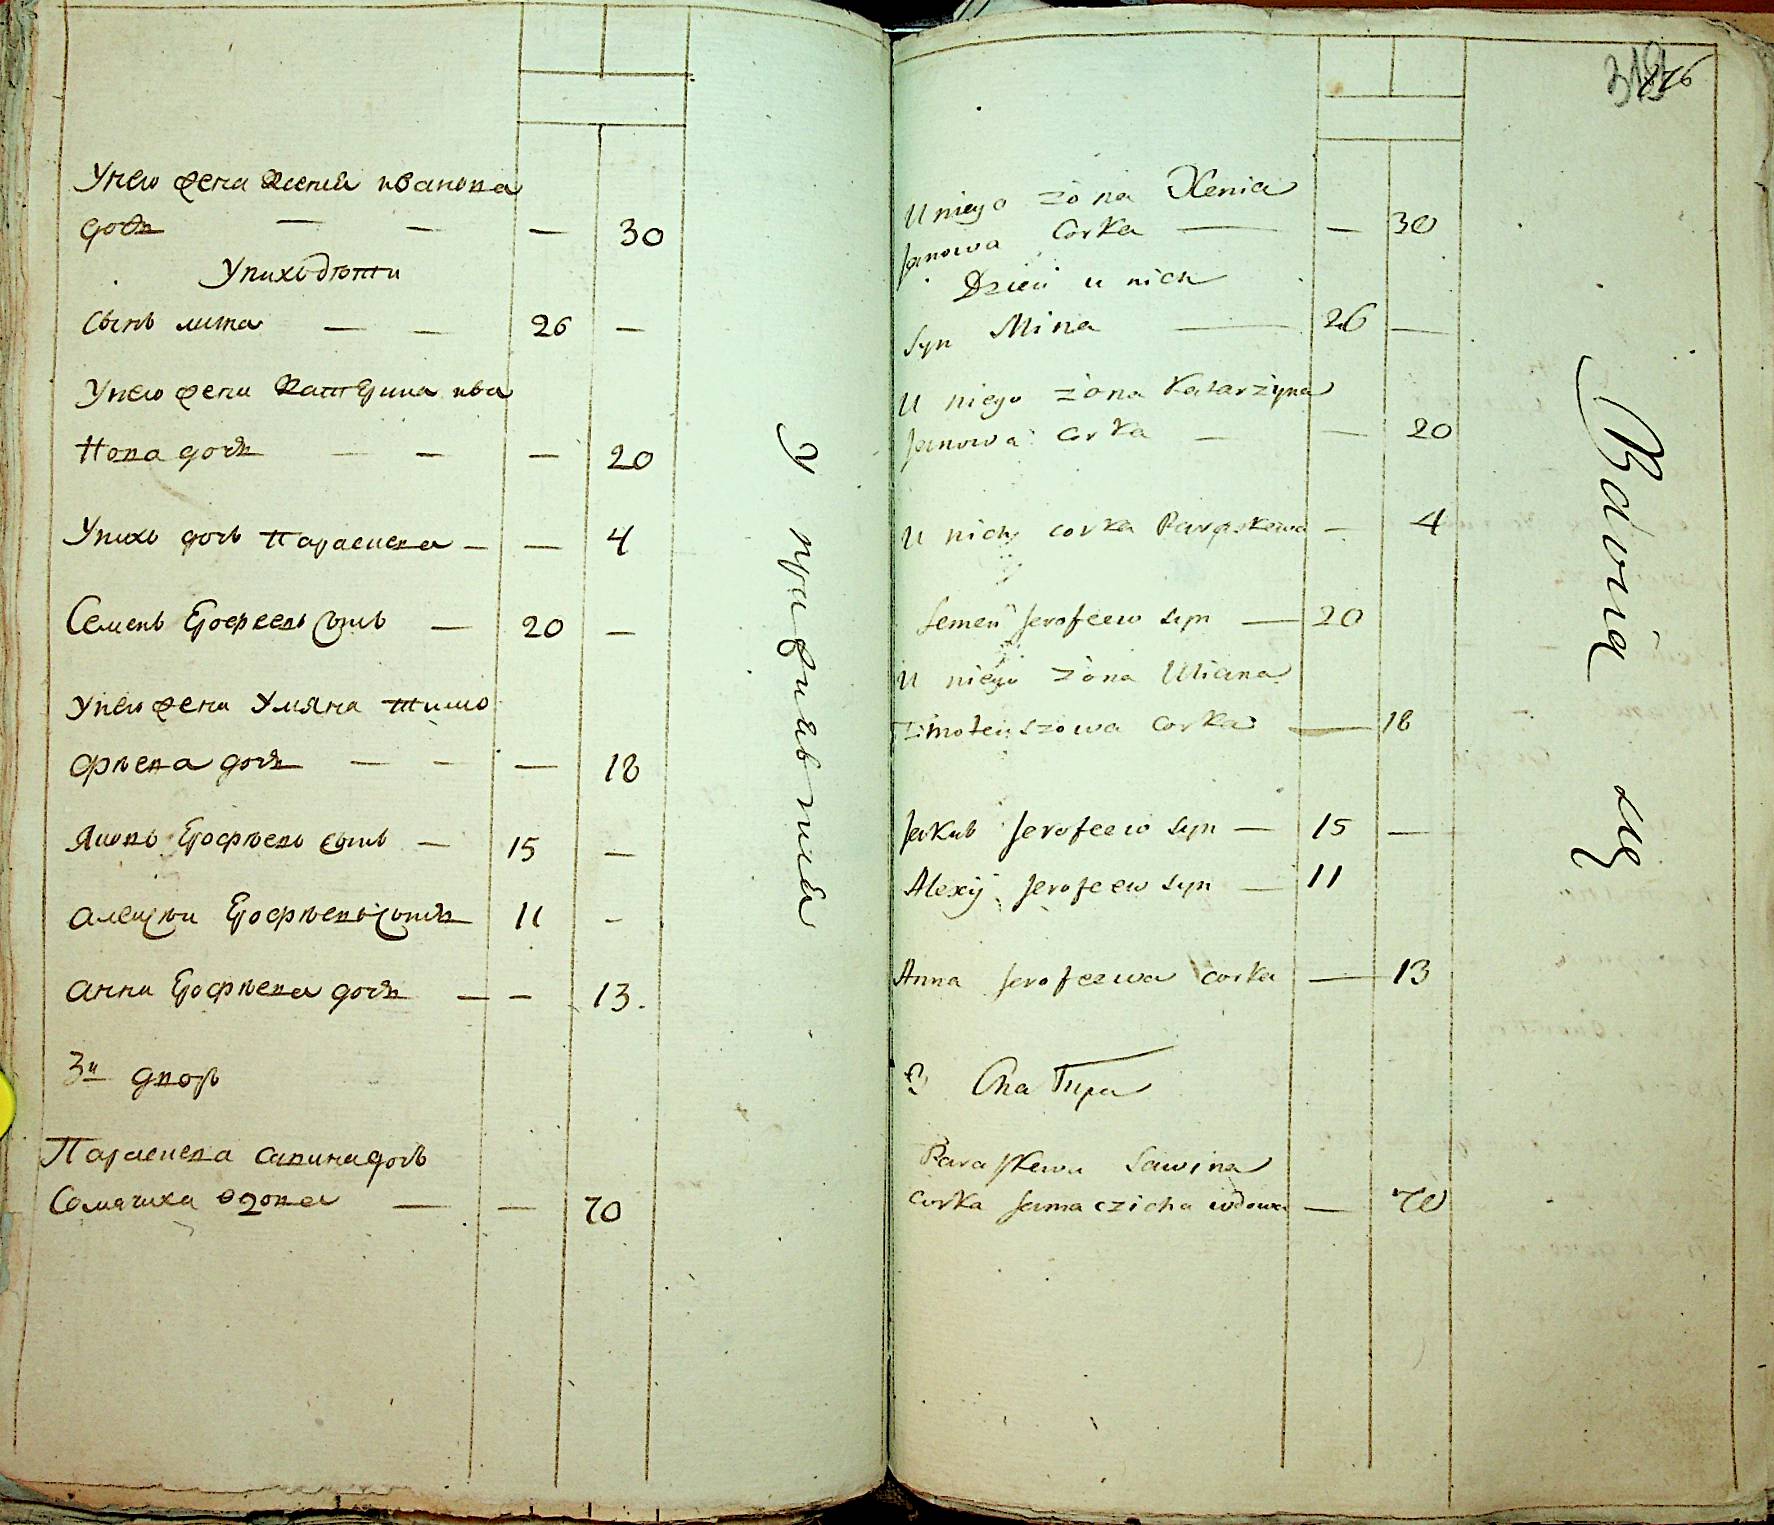 Унего жена Ксения иванова
дочь — — — 30
Унихъ дѣти
Сынъ мина — — 26 —
Унего жена Катерина ива
нова дочь — — — 20
Унихъ дочь Параскева — — 4
Семенъ Ерофеевъ сынъ — 20 —
Унего жена Уляна тимо
фѣева дочь — — — 18
Яковъ Ерофѣевъ сынъ — 15 —
Алексѣи Ерофѣевъ сынъ 11 —
Анна Ерофѣева дочь — — 13.
3й дворъ
Параскева савина дочь
Самачиха вдова — — 70
У
318
176
U niego żona Xenia
Janowa Corka — — 30
Dzieci u nich
Syn Mina — 26 —
U niego żona Katarzyna
Janowa Corka — — 20
U nich corka Paraskewa — 4
Semen Jerofeew syn — 20
U niego żona Uliana
Timoteuszowa Corka — 18
Jakub Jerofeew syn — 15 —
Alexij Jerofeew syn — 11
Anna Jerofeewa corka — 13
3 Chatupa
Paraskewa Sawina
corka Samaczicha wdowa — 70